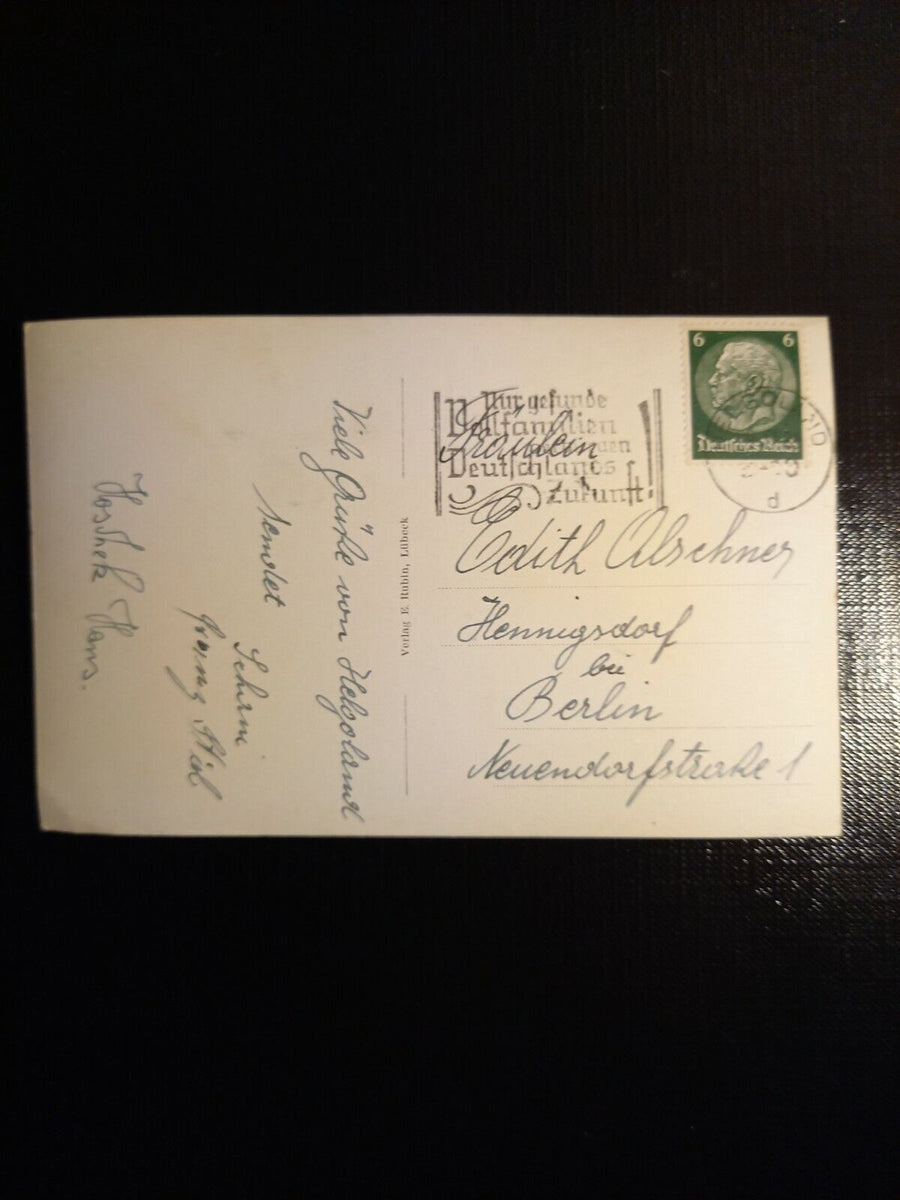 Viele Grüße von Helgoland
sendet
Franz
Hans.
Verlag E. Rubin, Lübeck
Nur gesunde
Vollfamilien
Deutschlands
Zukunft!
6 6
Deutsches Reich
HELGOLAND
d
Fräulein
Edith Alschner
Hennigsdorf
bei
Berlin
Neuendorfstraße 1